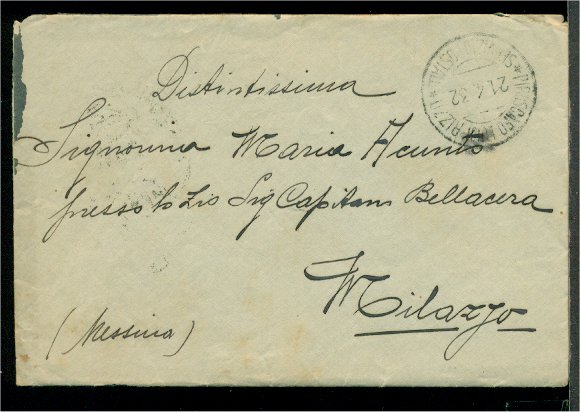 Distintissima
Signorina Maria Acunto
presso lo Zio Sig Capitano Bellacera
Milazzo
(Messina)
21.4.32